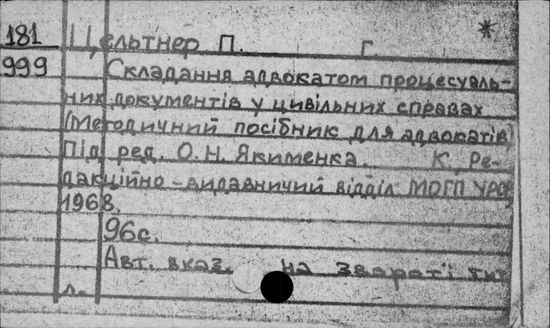 181 Цельтнер П. Г. *
999 Складання адвокатом процесуаль-
них документів у цивільних справах
(Методичний посібник для адвокатів)
Під ред. О.Н. Якименка. К Ре-
дакційно-видавничий відділ МОГП УРСР
1968.
96с.
Авт. вказ. на звороті тит
л.